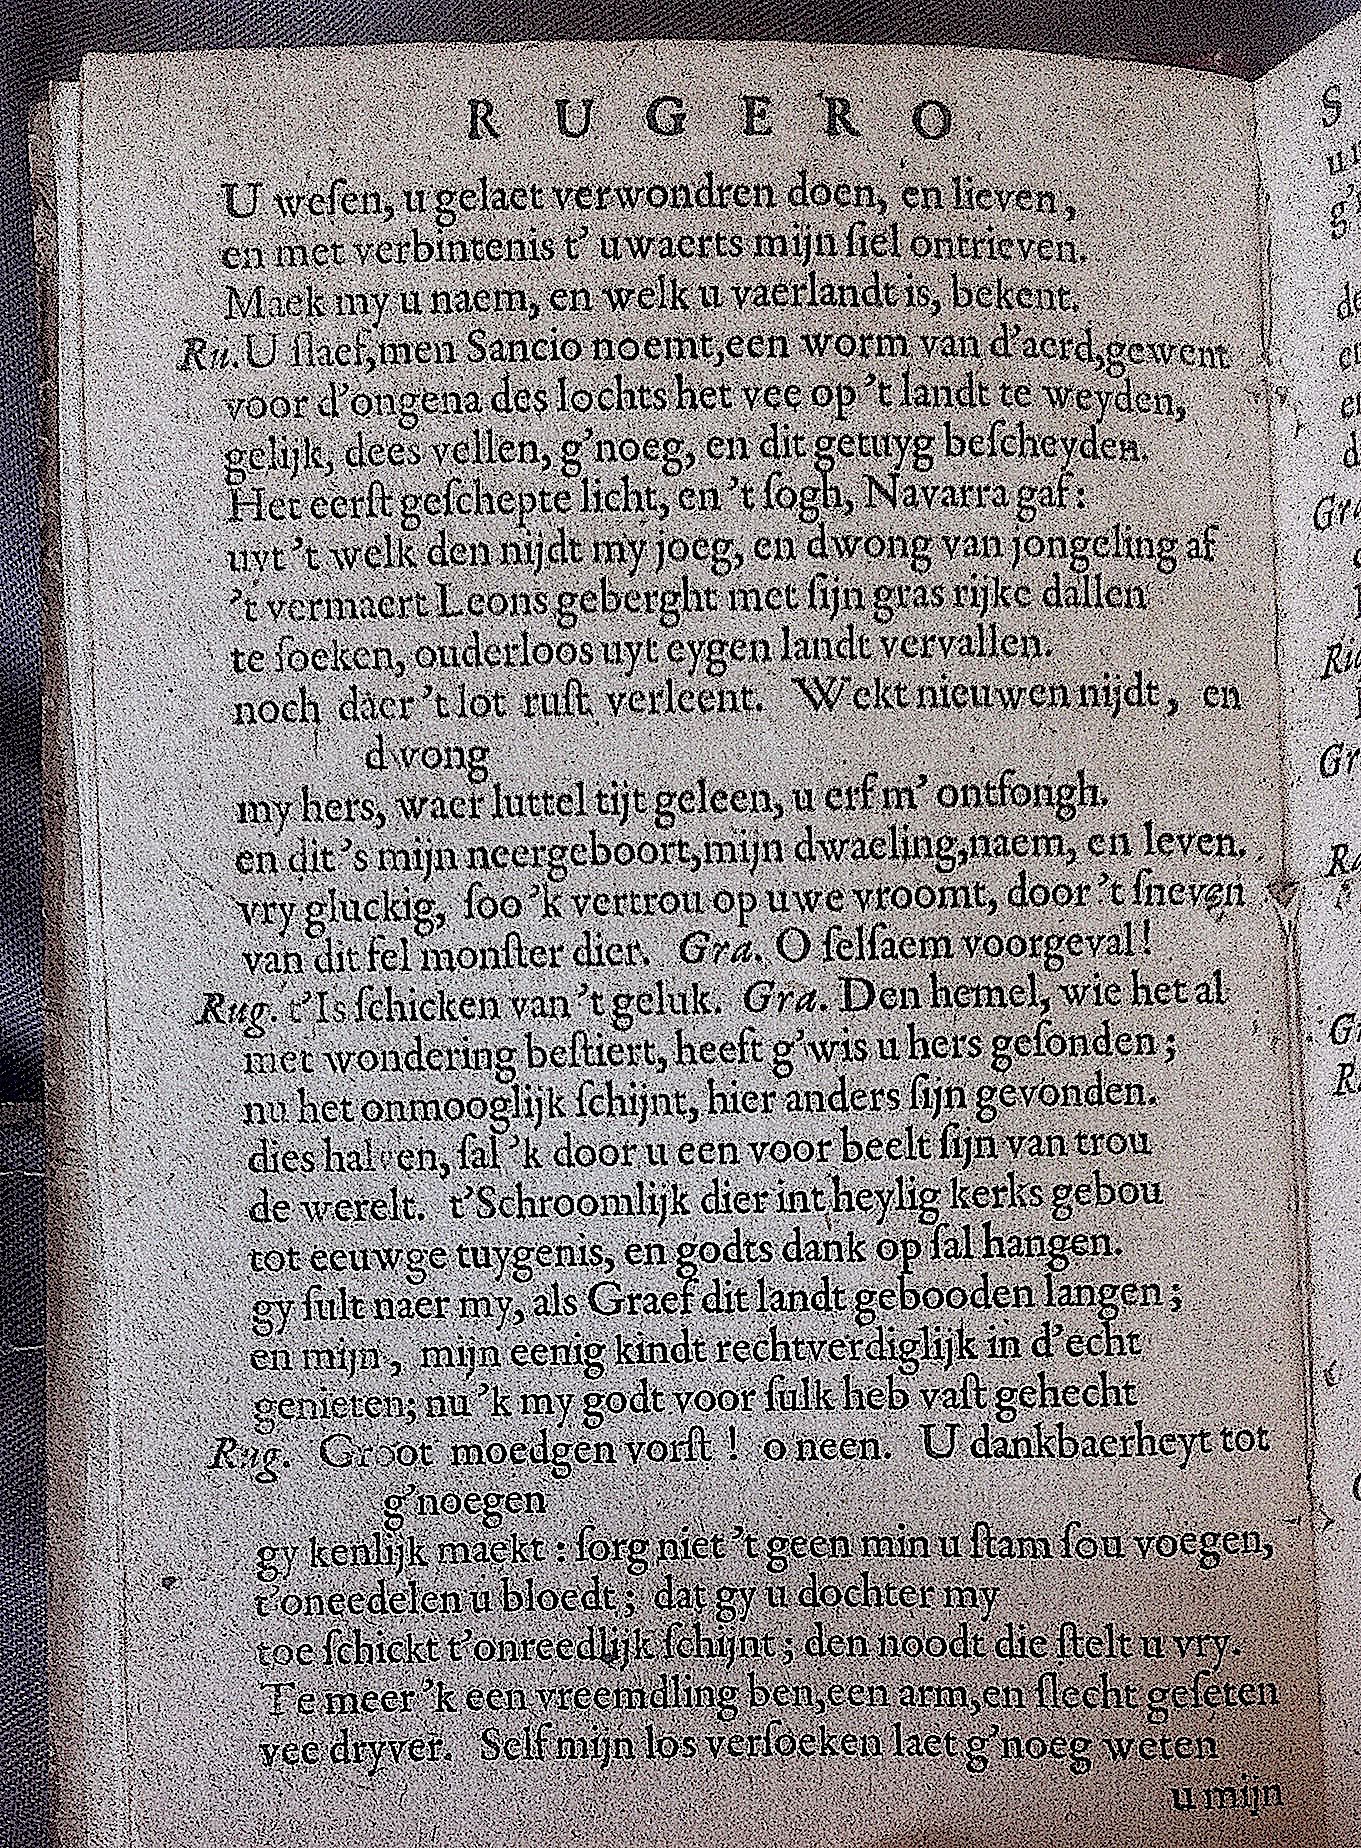 RUGERO
U weſen, u gelaet verwondren doen, en lieven,
en met verbintenis t' uwaerts mijn ſiel ontrieven.
Maek my u naem, en welk u vaerlandt is, bekent.
Ru. U ſlaef, men Sancio noemt, een worm van d'aerd, gewent
voor d'ongena des lochts het vee op 't landt te weyden,
gelijk, dees vellen, g'noeg, en dit getuyg beſcheyden.
Het eerſt geſchepte licht, en 't ſogh, Navarra gaf:
uyt 't welk den nijdt my joeg, en dwong van jongeling af
't vermaert Leons geberght met ſijn gras rijke dallen
te ſoeken, ouderloos uyt eygen landt vervallen.
noch daer 't lot ruſt verleent. Wekt nieuwen nijdt, en
dwong
my hers, waer luttel tijt geleen, u erf m' ontfongh.
en dit's mijn neergeboort, mijn dwaeling, naem, en leven.
vry gluckig, ſoo 'k vertrou op uwe vroomt, door 't ſneven
van dit fel monſter dier. Gra. O ſelſaem voorgeval!
Rug. t'Is ſchicken van 't geluk. Gra. Den hemel, wie het al
met wondering beſtiert, heeft g'wis u hers geſonden;
nu het onmooglijk ſchijnt, hier anders ſijn gevonden.
dies halven, ſal 'k door u een voor beelt ſijn van trou
de werelt. t'Schroomlijk dier int heylig kerks gebou
tot eeuwge tuygenis, en godts dank op ſal hangen.
gy ſult naer my, als Graef dit landt gebooden langen;
en mijn, mijn eenig kindt rechtverdiglijk in d'echt
genieten; nu 'k my godt voor ſulk heb vaſt gehecht
Rug. Groot moedgen vorſt! o neen. U dankbaerheyt tot
g'noegen
gy kenlijk maekt: ſorg niet 't geen min u ſtam ſou voegen,
t'oneedelen u bloedt; dat gy u dochter my
toe ſchickt t'onreedlijk ſchijnt; den noodt die ſtelt u vry.
Te meer 'k een vreemdling ben, een arm, en ſlecht geſeten
vee dryver. Self mijn los verſoeken laet g'noeg weten
u mijn